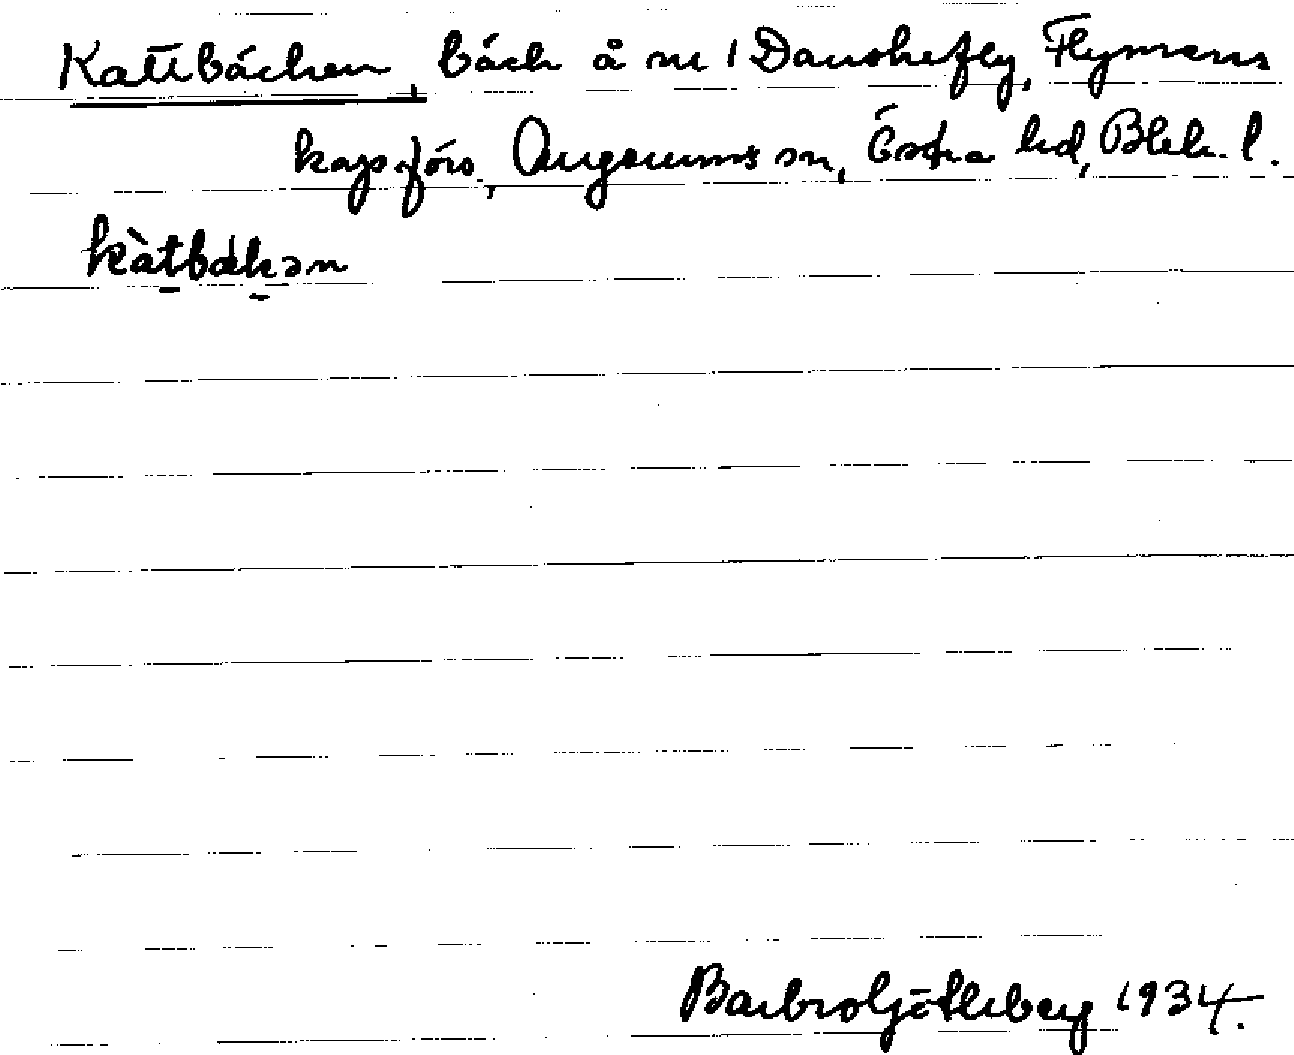 Kattbäcken, bäck å nr 1 Danskefly, Flymens
kap.förs., Augerums sn, Östra hd, Blek. l.
kàtbækən
Barbro Götleberg 1934.